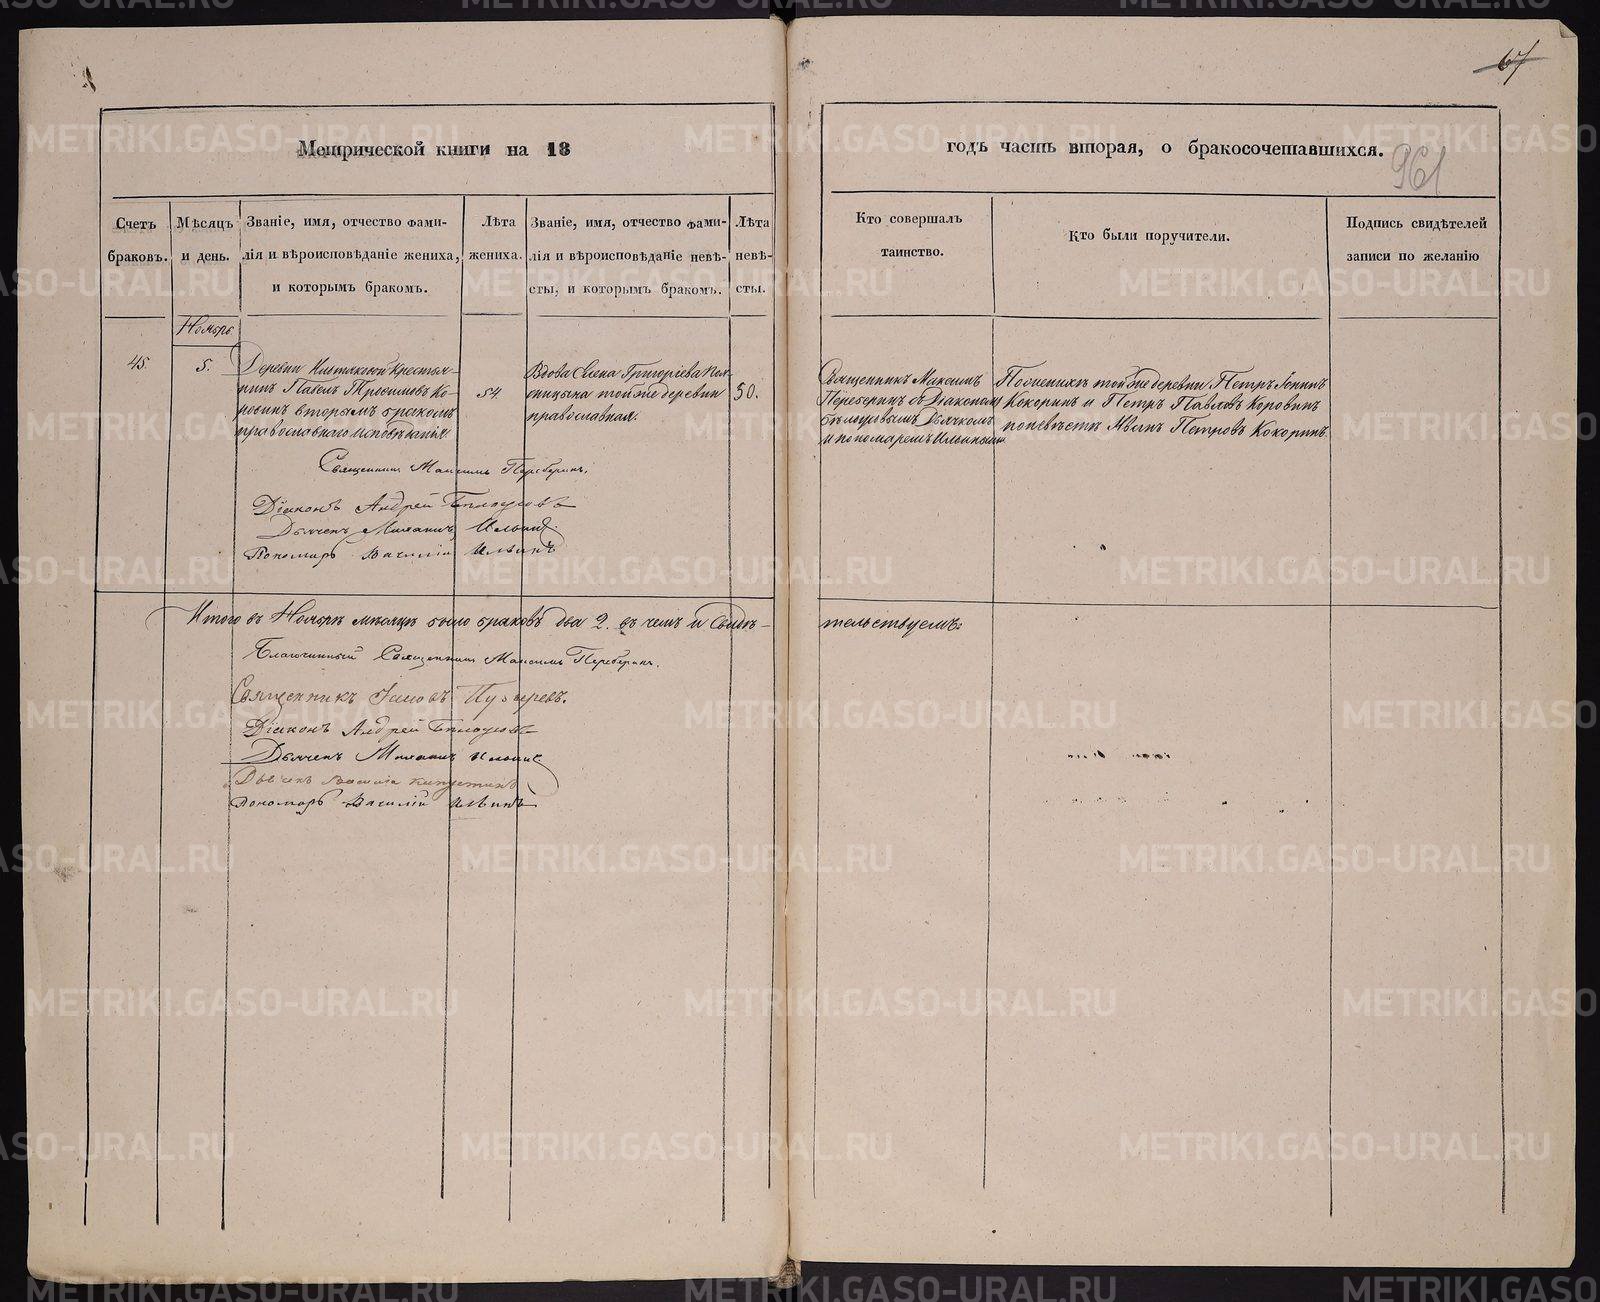 67
961
Метрической книги на 18
годъ часть вторая, о бракосочетавшихся.
Счетъ браковъ.
Мѣсяцъ и день.
Званіе, имя, отчество фами-
лія и вѣроисповѣданіе жениха,
и которымъ бракомъ.
Лѣта
жениха.
Званіе, имя, отчество фами-
лія и вѣроисповѣданіе невѣ-
сты, и которымъ бракомъ.
Лѣта
невѣ-
сты.
Кто совершалъ
таинство.
Кто были поручители.
Подпись свидѣтелей
записи по желанію
Ноябрь.
45.
5.
Деревни Крестья-
нинъ Павелъ Ко-
ровинъ вторымъ бракомъ
православнаго исповѣданія.
54
Вдова Елена Григоріева
той же деревни
православная.
50.
Священникъ Максимъ
Переберинъ съ Діакономъ
Бѣлоусовымъ Дьячкомъ
и пономаремъ Ильиными
По женихѣ той же деревни Петръ
Кокоринъ и Петръ Павловъ Коровинъ
по невѣстѣ Иванъ Петровъ Кокоринъ.
Священникъ Максимъ Переберинъ,
Діаконъ Андрей Бѣлоусовъ
Дьячекъ Михаилъ Ильинъ.
Пономарь Василій Ильинъ
Итого въ Ноябрѣ мѣсяцѣ было браковъ два 2. въ чемъ и свидѣ-
тельствуемъ:
Благочинный Священникъ Максимъ Переберинъ.
Священникъ Іаковъ Пузыревъ.
Діаконъ Андрей Бѣлоусовъ
Дьячекъ Михаилъ Ильинъ
Дьячекъ Василій Капустинъ
Пономарь Василій Ильинъ
METRIKI.GASO-URAL.RU